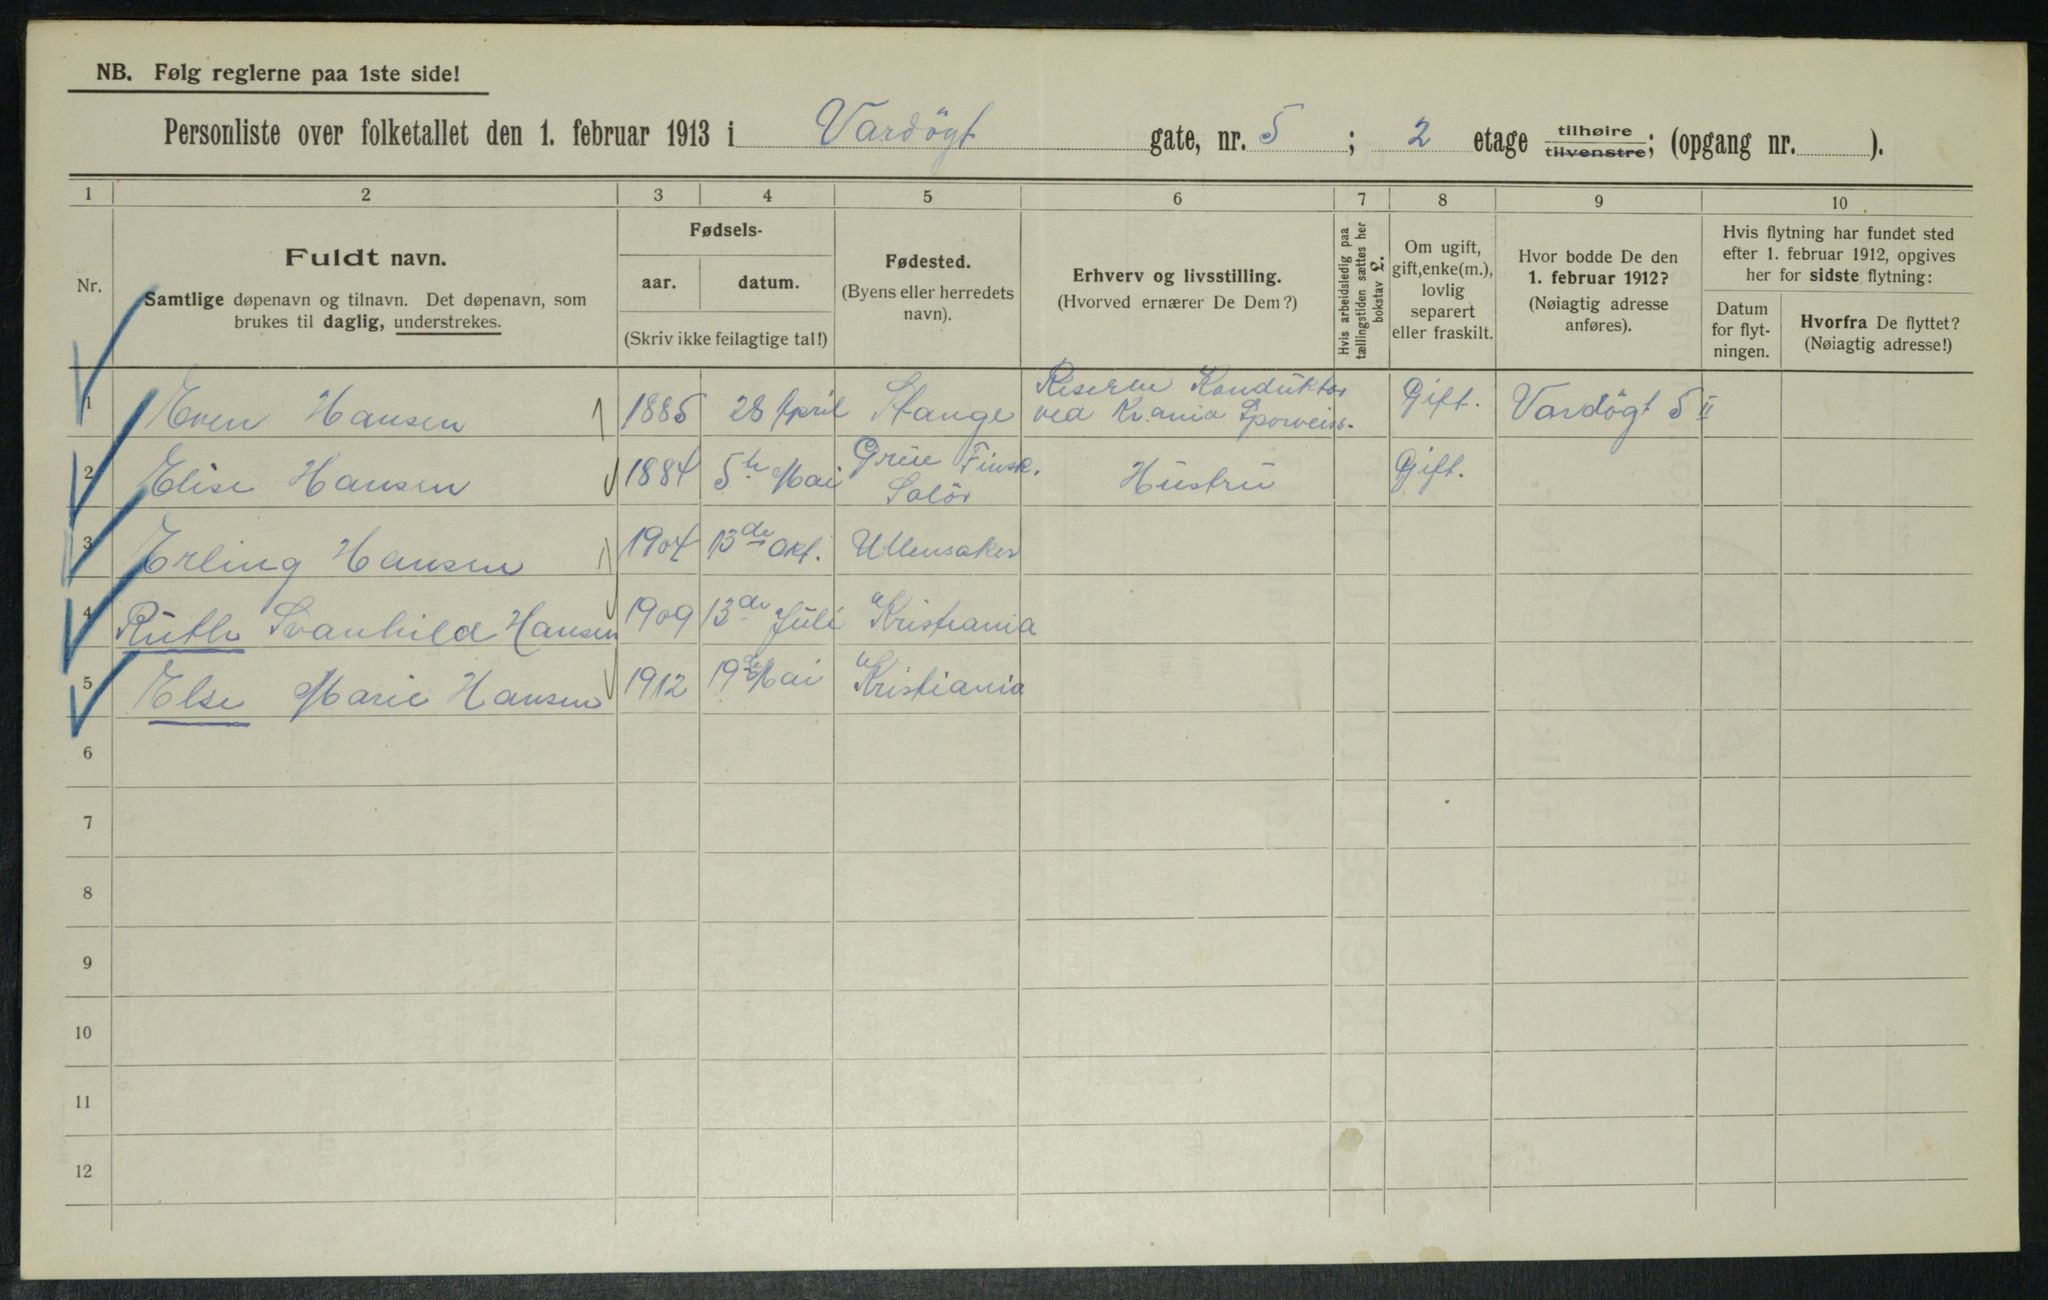 NB. Følg reglerne paa 1ste side!
Personliste over folketallet den 1. februar 1913 i Vardögt gate, nr. 5 ; 2 etage tilhøire tilvenstre; (opgang nr. ).
1 2 3 4 5 6 7 8 9 10
Nr.
Fuldt navn.
Samtlige døpenavn og tilnavn. Det døpenavn, som
brukes til daglig, understrekes.
Fødsels-
aar. datum.
(Skriv ikke feilagtige tal!)
Fødested.
(Byens eller herredets
navn).
Erhverv og livsstilling.
(Hvorved ernærer De Dem?)
Hvis arbeidsledig paa
tællingstiden sættes her
bokstav L.
Om ugift,
gift, enke(m.),
lovlig
separert
eller fraskilt.
Hvor bodde De den
1. februar 1912?
(Nøiagtig adresse
anføres).
Hvis flytning har fundet sted
efter 1. februar 1912, opgives
her for sidste flytning:
Datum
for flyt-
ningen.
Hvorfra De flyttet?
(Nøiagtig adresse!)
1 Even Hansen 1885 28 April Stange Reserve Konduktør
ved Kr.ania Sporveiss. Gift. Vardögt 5 II
2 Elise Hansen 1884 5te Mai Grue Finsk.
Solör Hustru Gift.
3 Erling Hansen 1904 13de Okt. Ullensaker
4 Ruth Svanhild Hansen 1909 13de Juli Kristiania
5 Else Marie Hansen 1912 19de Mai Kristiania
6
7
8
9
10
11
12